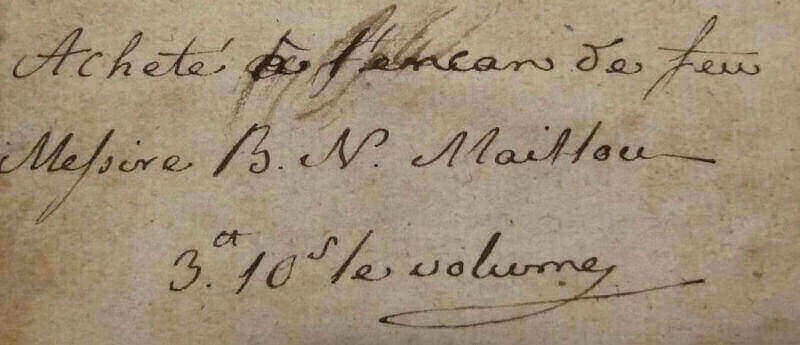 Acheté à l'encan de feu
Messire B. N. Maillou
3.tt 10s le volume